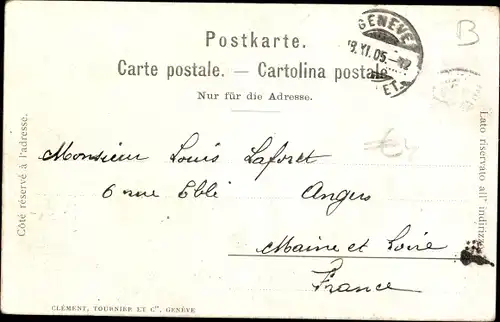 GENÈVE
9.XI.05.–12
ET.
B
Postkarte.
Carte postale. — Cartolina postale.
Nur für die Adresse.
Côté réservé à l'adresse.
Lato riservato all' indirizzo.
Monsieur Louis Laforet
6 rue Eblé Angers
Maine et Loire
France
CLÉMENT, TOURNIER ET Cie, GENÈVE